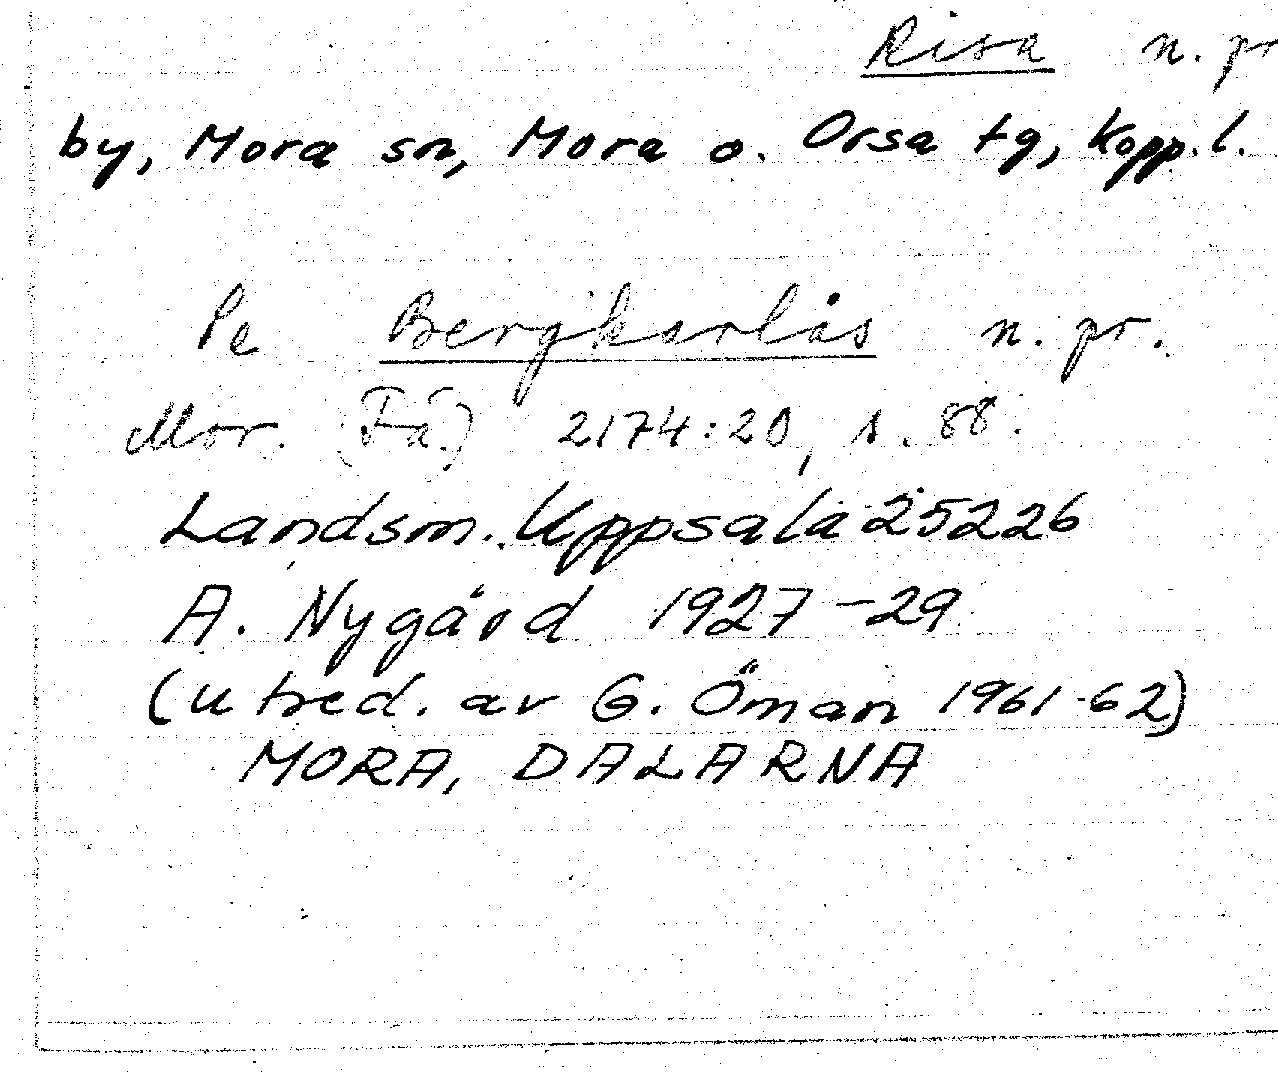 Risa n. pr
by, Mora sn, Mora o. Orsa tg, Kopp. l.
Se Bergkarlås n. pr.
Mor. (Få.) 2174:20, s. 88.
Landsm. Uppsala 25226
A. Nygård 1927-29
(utred. av G. Öman 1961-62)
MORA, DALARNA